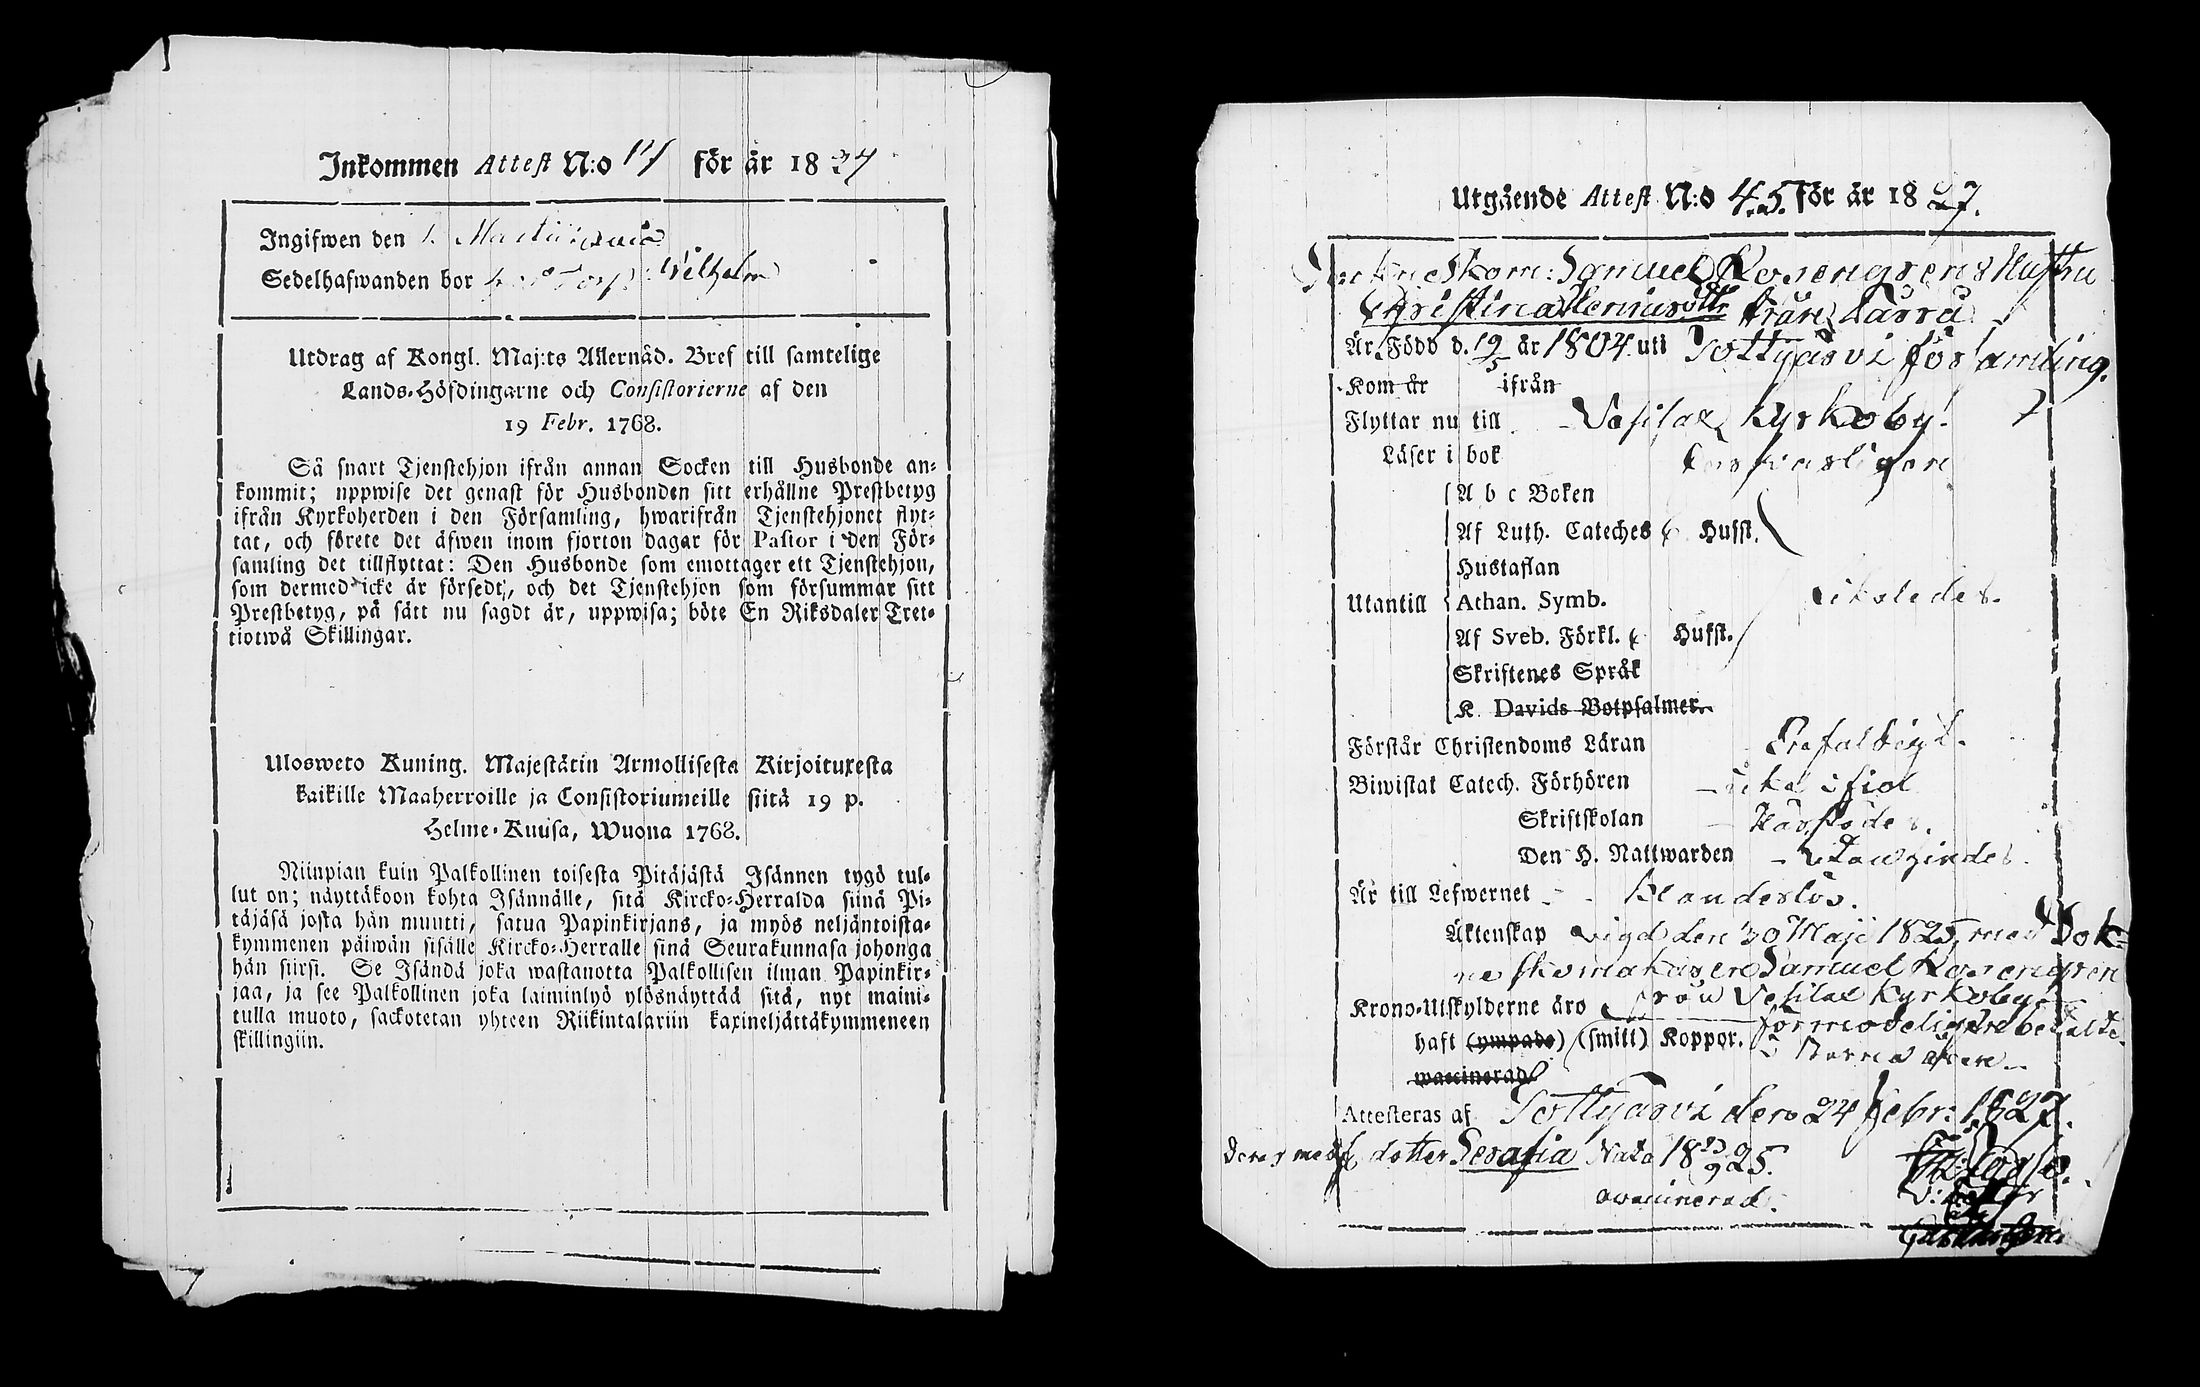 Inkommen Attest N:o 17 för år 1827
Ingifwen den 1. Martii
Sedelhafwanden bor Wilhelm
Utdrag af Kongl. Maj:ts Allernåd. Bref till samtelige
Lands-Höfdingarne och Consistorierne af den
19 Febr. 1768.
Så snart Tjenstehjon ifrån annan Socken till Husbonde an-
kommit; uppwise det genast för Husbonden sitt erhållne Prestbetyg
ifrån Kyrkoherden i den Församling, hwarifrån Tjenstehjonet flyt-
tat, och förete det äfwen inom fjorton dagar för Pastor i den För-
samling det tillflyttat: Den Husbonde som emottager ett Tjenstehjon,
som dermed icke är försedt, och det Tjenstehjon som försummar sitt
Prestbetyg, på sätt nu sagdt är, uppwisa; böte En Riksdaler Tret-
tiotwå Skillingar.
Ulosweto Kuning. Majestätin Armollisesta Kirjoituxesta
kaikille Maaherroille ja Consistoriumeille siitä 19 p.
Helme-Kuusa, Wuona 1768.
Niinpian kuin Palkollinen toisesta Pitäjästä Isännen tygö tul-
lut on; näyttäkoon kohta Isännälle, sitä Kircko-Herralda siinä Pi-
täjäsä josta hän muutti, satua Papinkirjans, ja myös neljäntoista-
kymmenen päiwän sisälle Kircko-Herralle sinä Seurakunnasa johonga
hän siirsi. Se Isändä joka wastanotta Palkollisen ilman Papinkir-
jaa, ja see Palkollinen joka laiminlyö ylösnäyttää sitä, nyt maini-
tulla muoto, sackotetan yhteen Riikintalariin kaxineljättäkymmeneen
skillingiin.
Utgående Attest N:o 45. för år 1827.
Skom: Samuel Rosengrens Hustru
Christina Henricsdtr från Lärrä
Är Född d. 19/5 år 1804. uti Tottijärvi församling.
Kom år ifrån
Flyttar nu till Vesilax Kyrkoby.
Läser i bok försvarligen
A b c Boken
Af Luth. Cateches Hufst.
Hustaflan
Utantill Athan. Symb. likaledes.
Af Sveb. Förkl. Hufst.
Skriftenes Språk
K. Davids Botpsalmer.
Förstår Christendoms Läran Enfaldigt.
Biwistat Catech. Förhören
Skriftskolan
Den H. Nattwarden
Är till Lefwernet Klanderlös.
Äktenskap vigd den 30 Maji 1825, med Sok-
ne skomakaren Samuel Rosengren
från Vesilax Kyrkoby.
Krono-Utskylderne äro förmodeligen betalte
haft (ympade) (smitt) Koppor.
waccinerad
Attesteras af Tottijärvi den 24 Febr: 1827.
Deras med dotter Serafia Nata 18 23/9 25.
ovaccinerad.